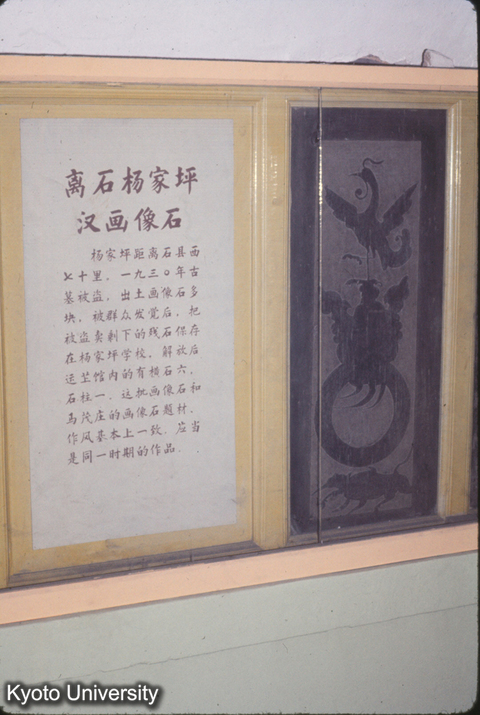 离石杨家坪
汉画像石
杨家坪距离石县西
七十里．一九三〇年古
墓被盗，出土画像石多
块，被群众发觉后，把
被盗卖剩下的残石保存
在杨家坪学校，解放后
运至馆内的有横石六，
石柱一．这批画像石和
马茂庄的画像石题材、
作风基本上一致．应当
是同一时期的作品．
Kyoto University